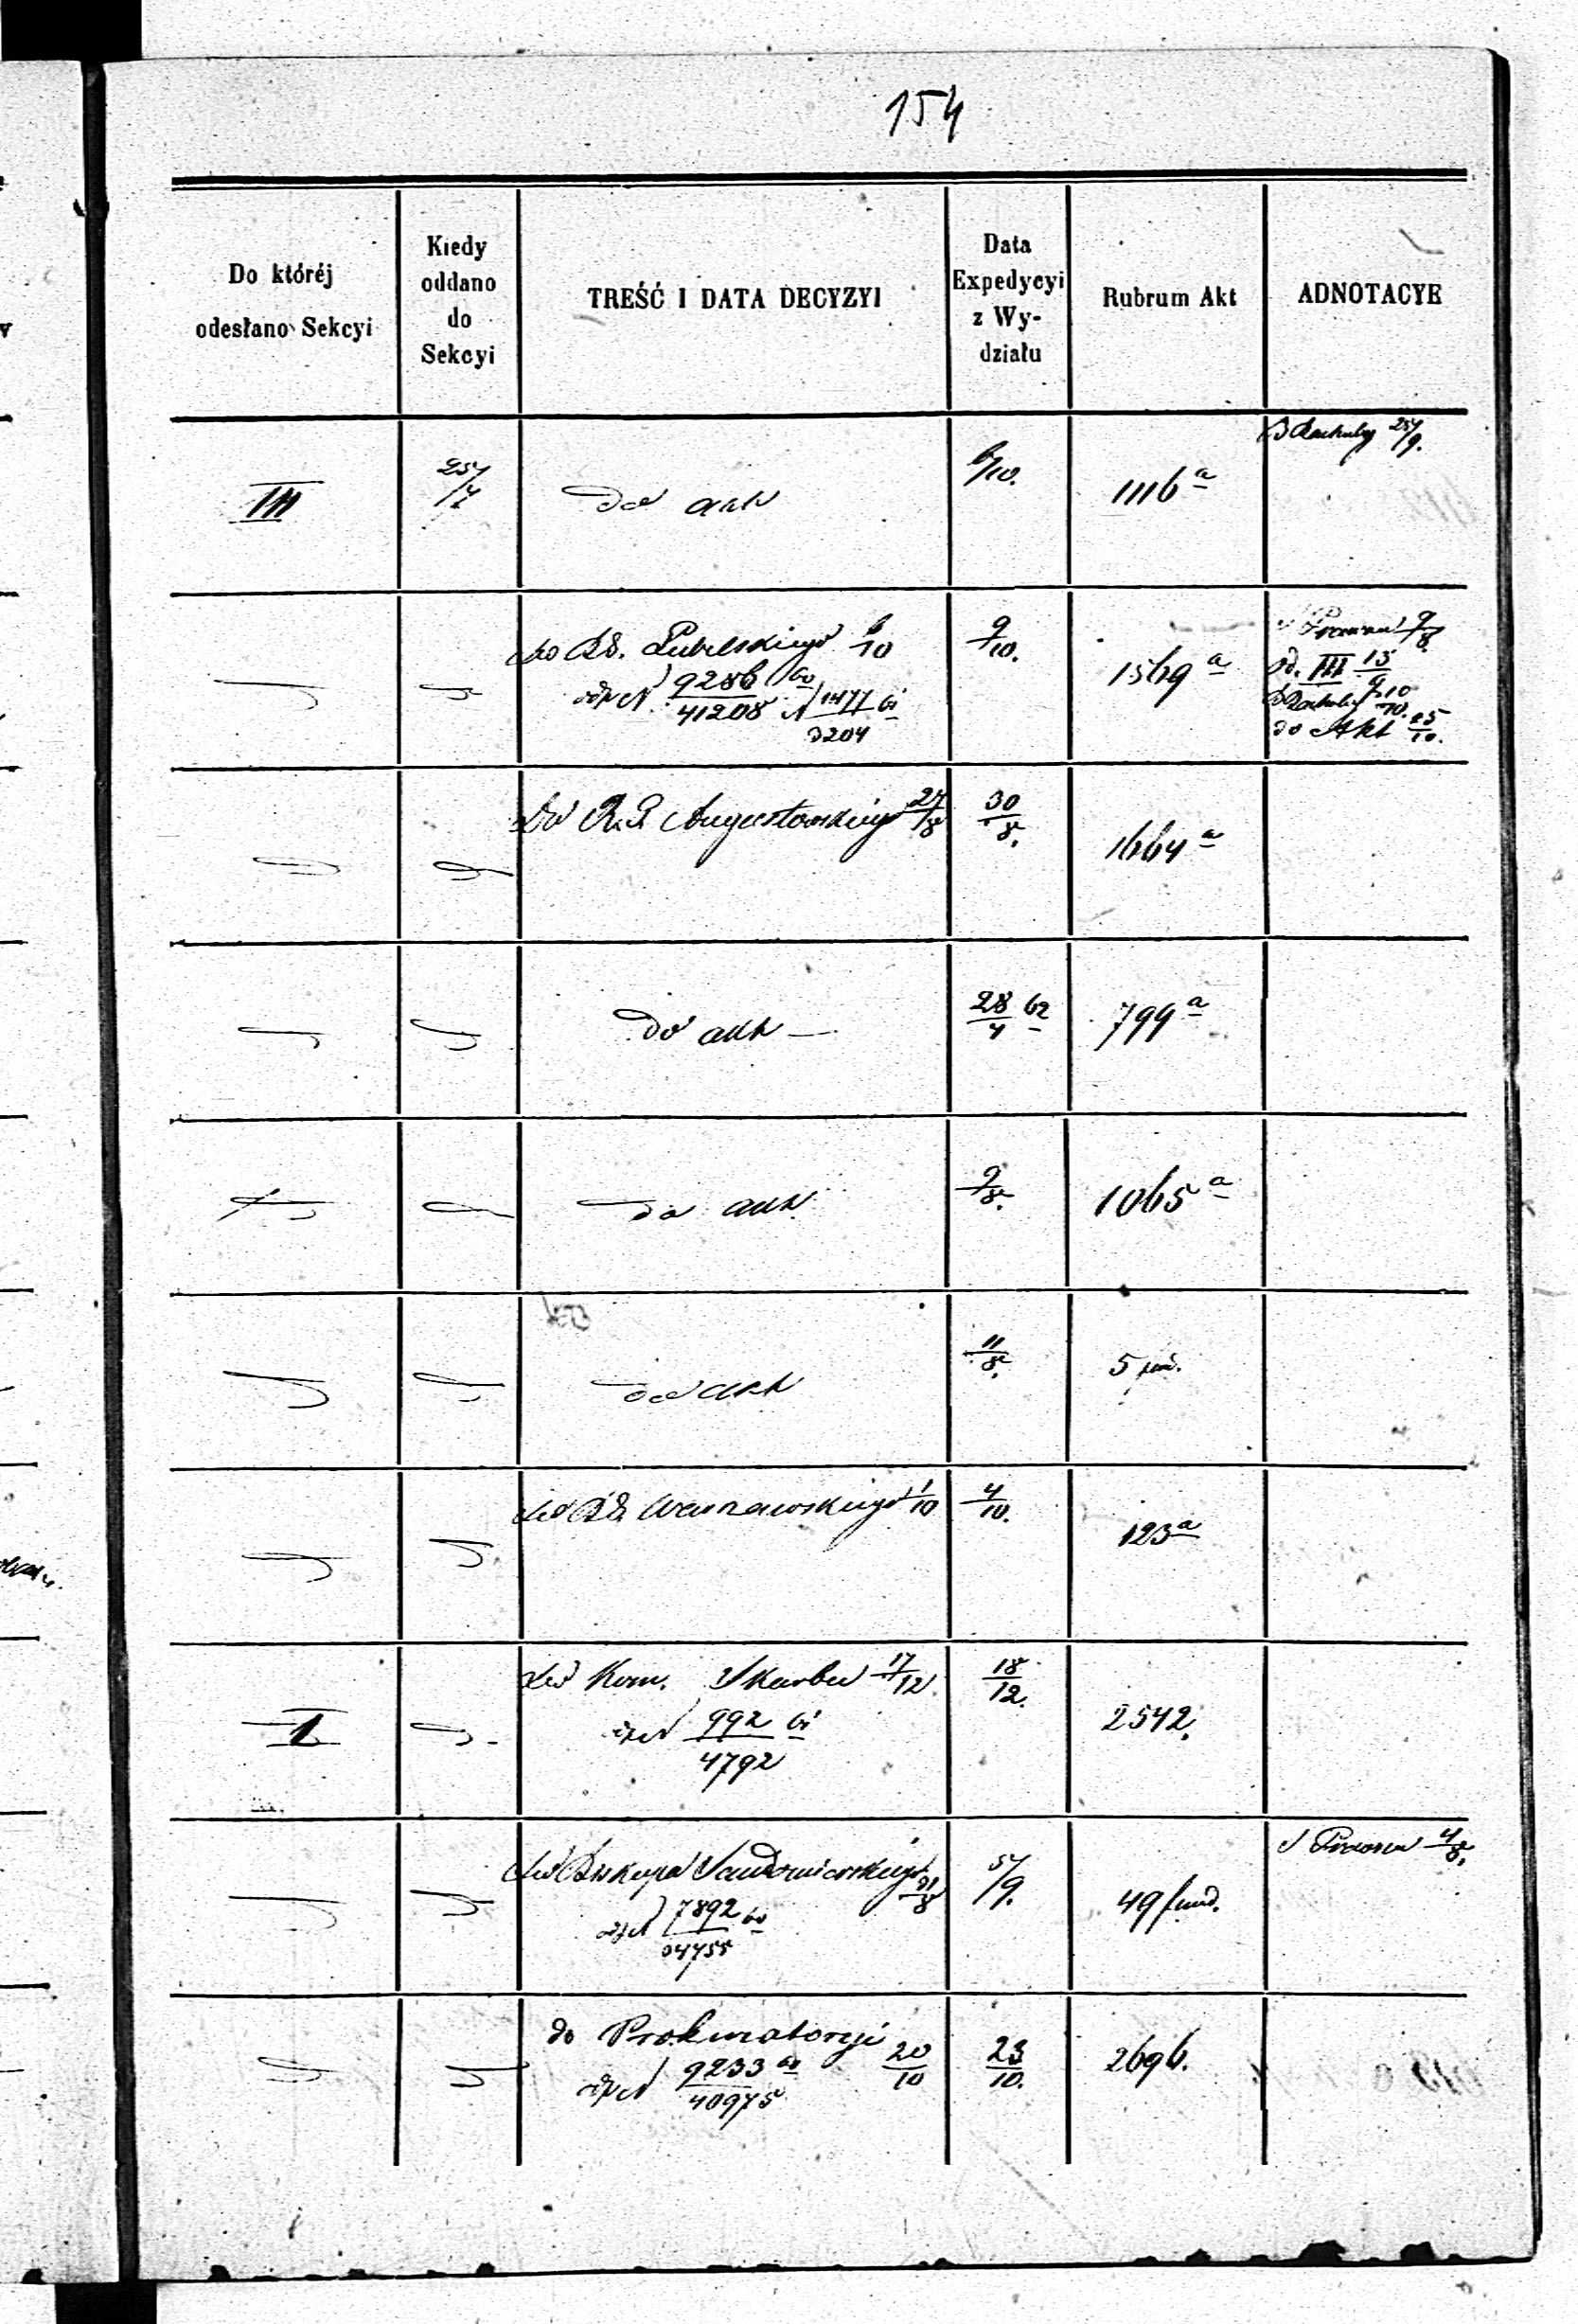 154
Do któréj odesłano Sekcyi
Kiedy oddano do Sekcyi
TREŚĆ I DATA DECYZYI
Data Expedycyi z Wydziału
Rubrum Akt
ADNOTACYE
III
do akt
6/10.
1116 a
do Lubelskiego 6/10
9286 60
41208
1477 61
3204
9/10.
1569 a
III 15/9
do Akt 25/10.
Do R. G. Augustowskiego 27/8
30/8.
1664 a
do akt —
28/4 62
799 a
do akt
9/8.
1065 a
do akt
11/8.
5
do Warszawskiego 1/10
4/10.
123 a
I
do Kom. Skarbu 17/12
992 61
4792
18/12.
2542.
do Biskupa Sandomierskiego 31/8
7892 60
34755
5/9.
49 fund.
4/8.
do Prokuratoryi 20/10
9233 60
40975
23/10.
2696.